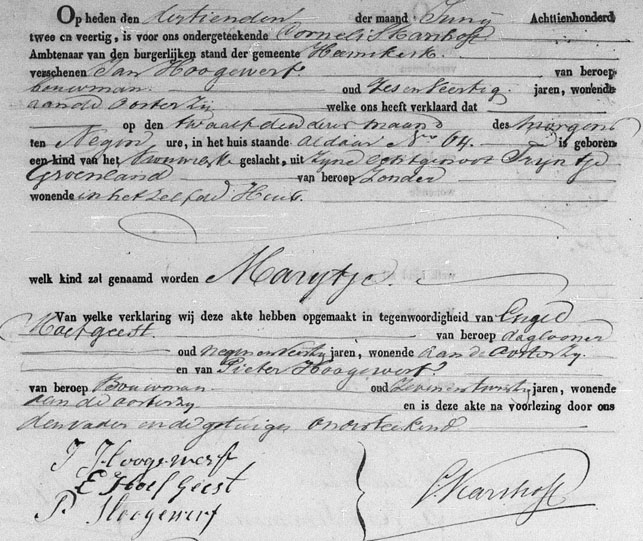 Op heden den dertienden der maand Junij Achttienhonderd
twee en veertig, is voor ons ondergeteekende Cornelis Karshoff
Ambtenaar van den burgerlijken stand der gemeente Heemskerk
verschenen Jan Hoogewerf van beroep
bouwman oud zes en veertig jaren, wonende
aan de Oosterzij welke ons heeft verklaard dat
op den twaalfden dezer maand des morgens
ten Negen ure, in het huis staande aldaar No 64. is geboren
een kind van het vrouwelijk geslacht, uit zijne echtgenoot Trijntje
Groenland van beroep zonder
wonende in het zelfde Huis.
welk kind zal genaamd worden Marijtje.
Van welke verklaring wij deze akte hebben opgemaakt in tegenwoordigheid van Engel
Hoetgeest van beroep daglooner
oud negen en veertig jaren, wonende aan de Oosterzij
en van Pieter Hoogewerf
van beroep Bouwman oud zeven en twintig jaren, wonende
aan de Oosterzij en is deze akte na voorlezing door ons
den vader en de getuigen onderteekend.
J Hoogewerf
E Hoef Geest
P. Hoogewerf
C. Karshoff